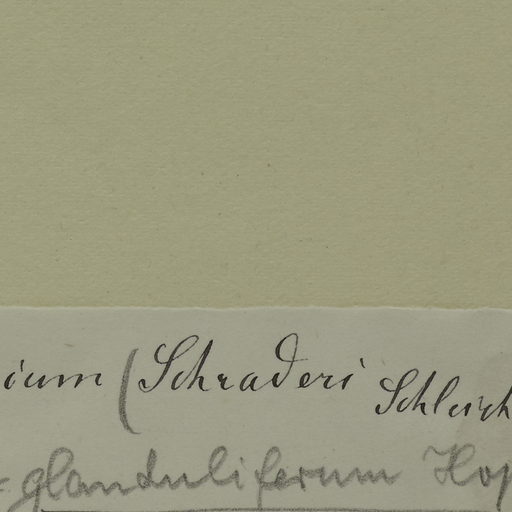 ium (Schraderi Schleich
= glanduliferum Hop